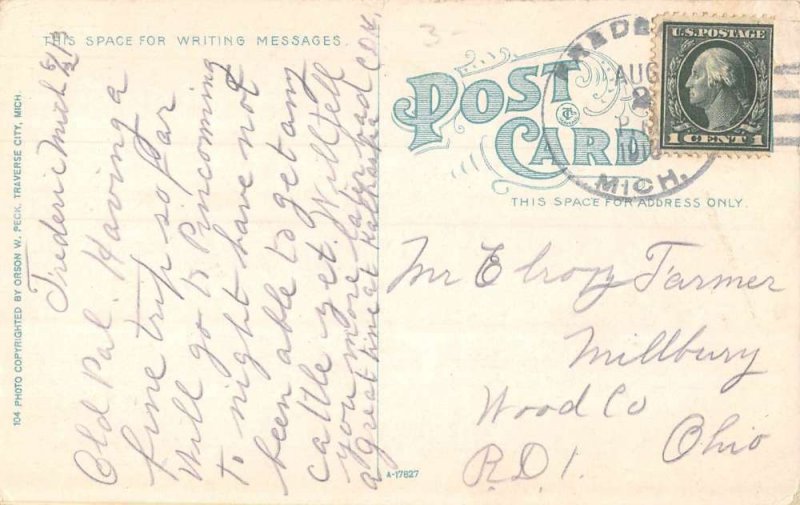 THIS SPACE FOR WRITING MESSAGES.
104 PHOTO COPYRIGHTED BY ORSON W. PECK, TRAVERSE CITY, MICH.
Frederic Mich 8/2
Old Pal. Having a
fine trip so far
Will go to Pinconning
to night have not
been able to get any
cattle yet. Will tell
you more later had
a great time at Kalkaska
POST
CARD
THIS SPACE FOR ADDRESS ONLY.
AUG
2
MICH.
U.S. POSTAGE
1 CENT 1
Mr Elroy Farmer
Millbury
Wood Co
Ohio
R.D. 1.
A-17827